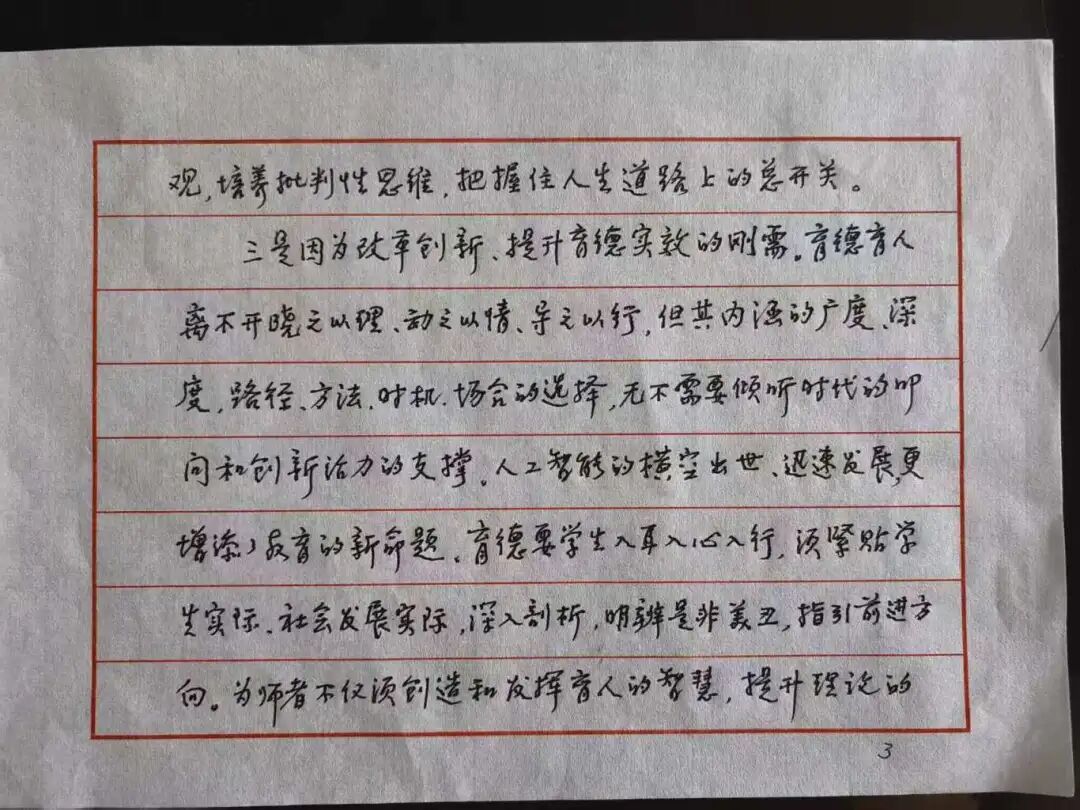 观,培养批判性思维,把握住人生道路上的总开关。
三是因为改革创新、提升育德实效的刚需。育德育人
离不开晓之以理、动之以情、导之以行,但其内涵的广度、深
度,路径、方法、时机、场合的选择,无不需要倾听时代的叩
问和创新活力的支撑。人工智能的横空出世、迅速发展,更
增添了教育的新命题、育德要学生入耳入心入行,须紧贴学
生实际、社会发展实际,深入剖析,明辨是非美丑,指引前进方
向。为师者不仅须创造和发挥育人的智慧,提升理论的
3